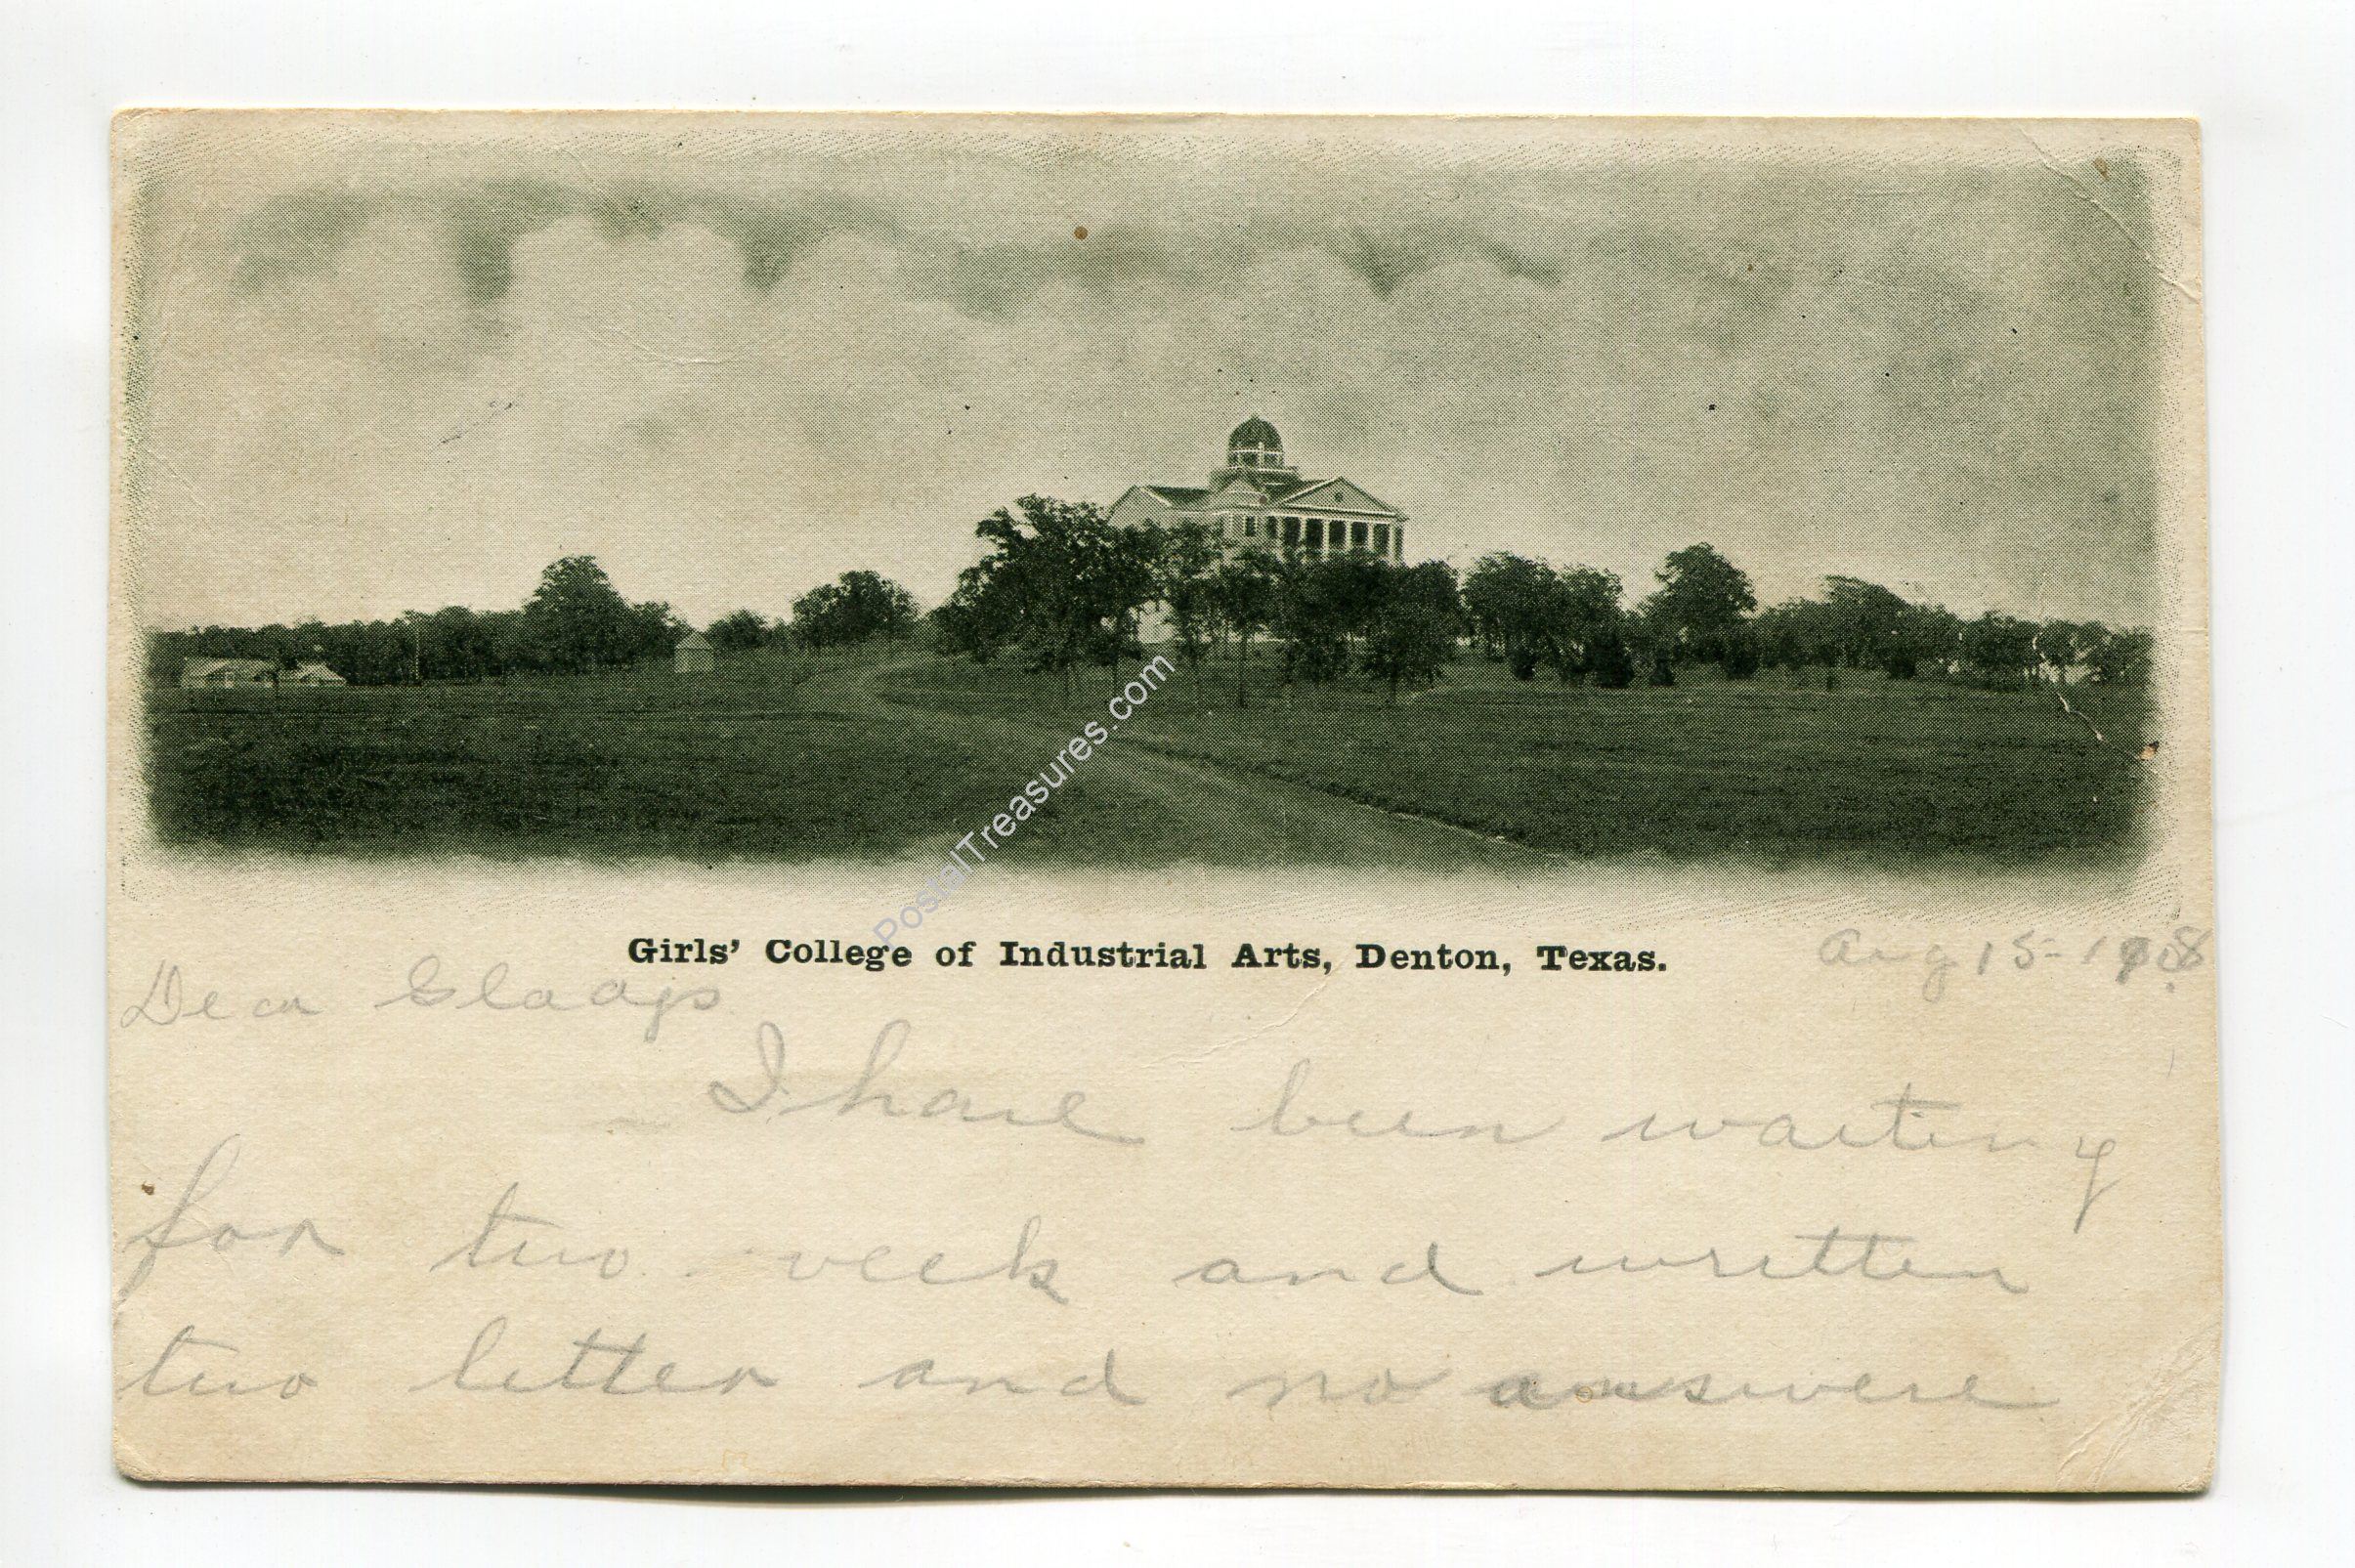 PostalTreasures.com
Girls' College of Industrial Arts, Denton, Texas.
Aug 15 - 1908
Dear Gladys
I have been waiting
for two week and written
two letter and no answere